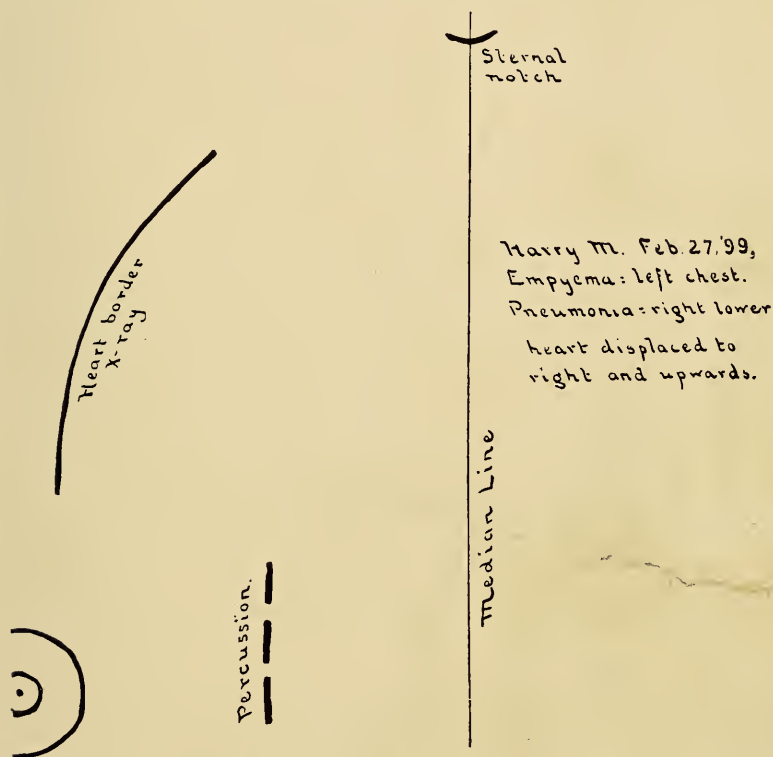 Sternal
notch
Heart border
X-ray
Harry M. Feb. 27, '99,
Empyema: left chest.
Pneumonia: right lower
heart displaced to
right and upwards.
Median Line
Percussion.